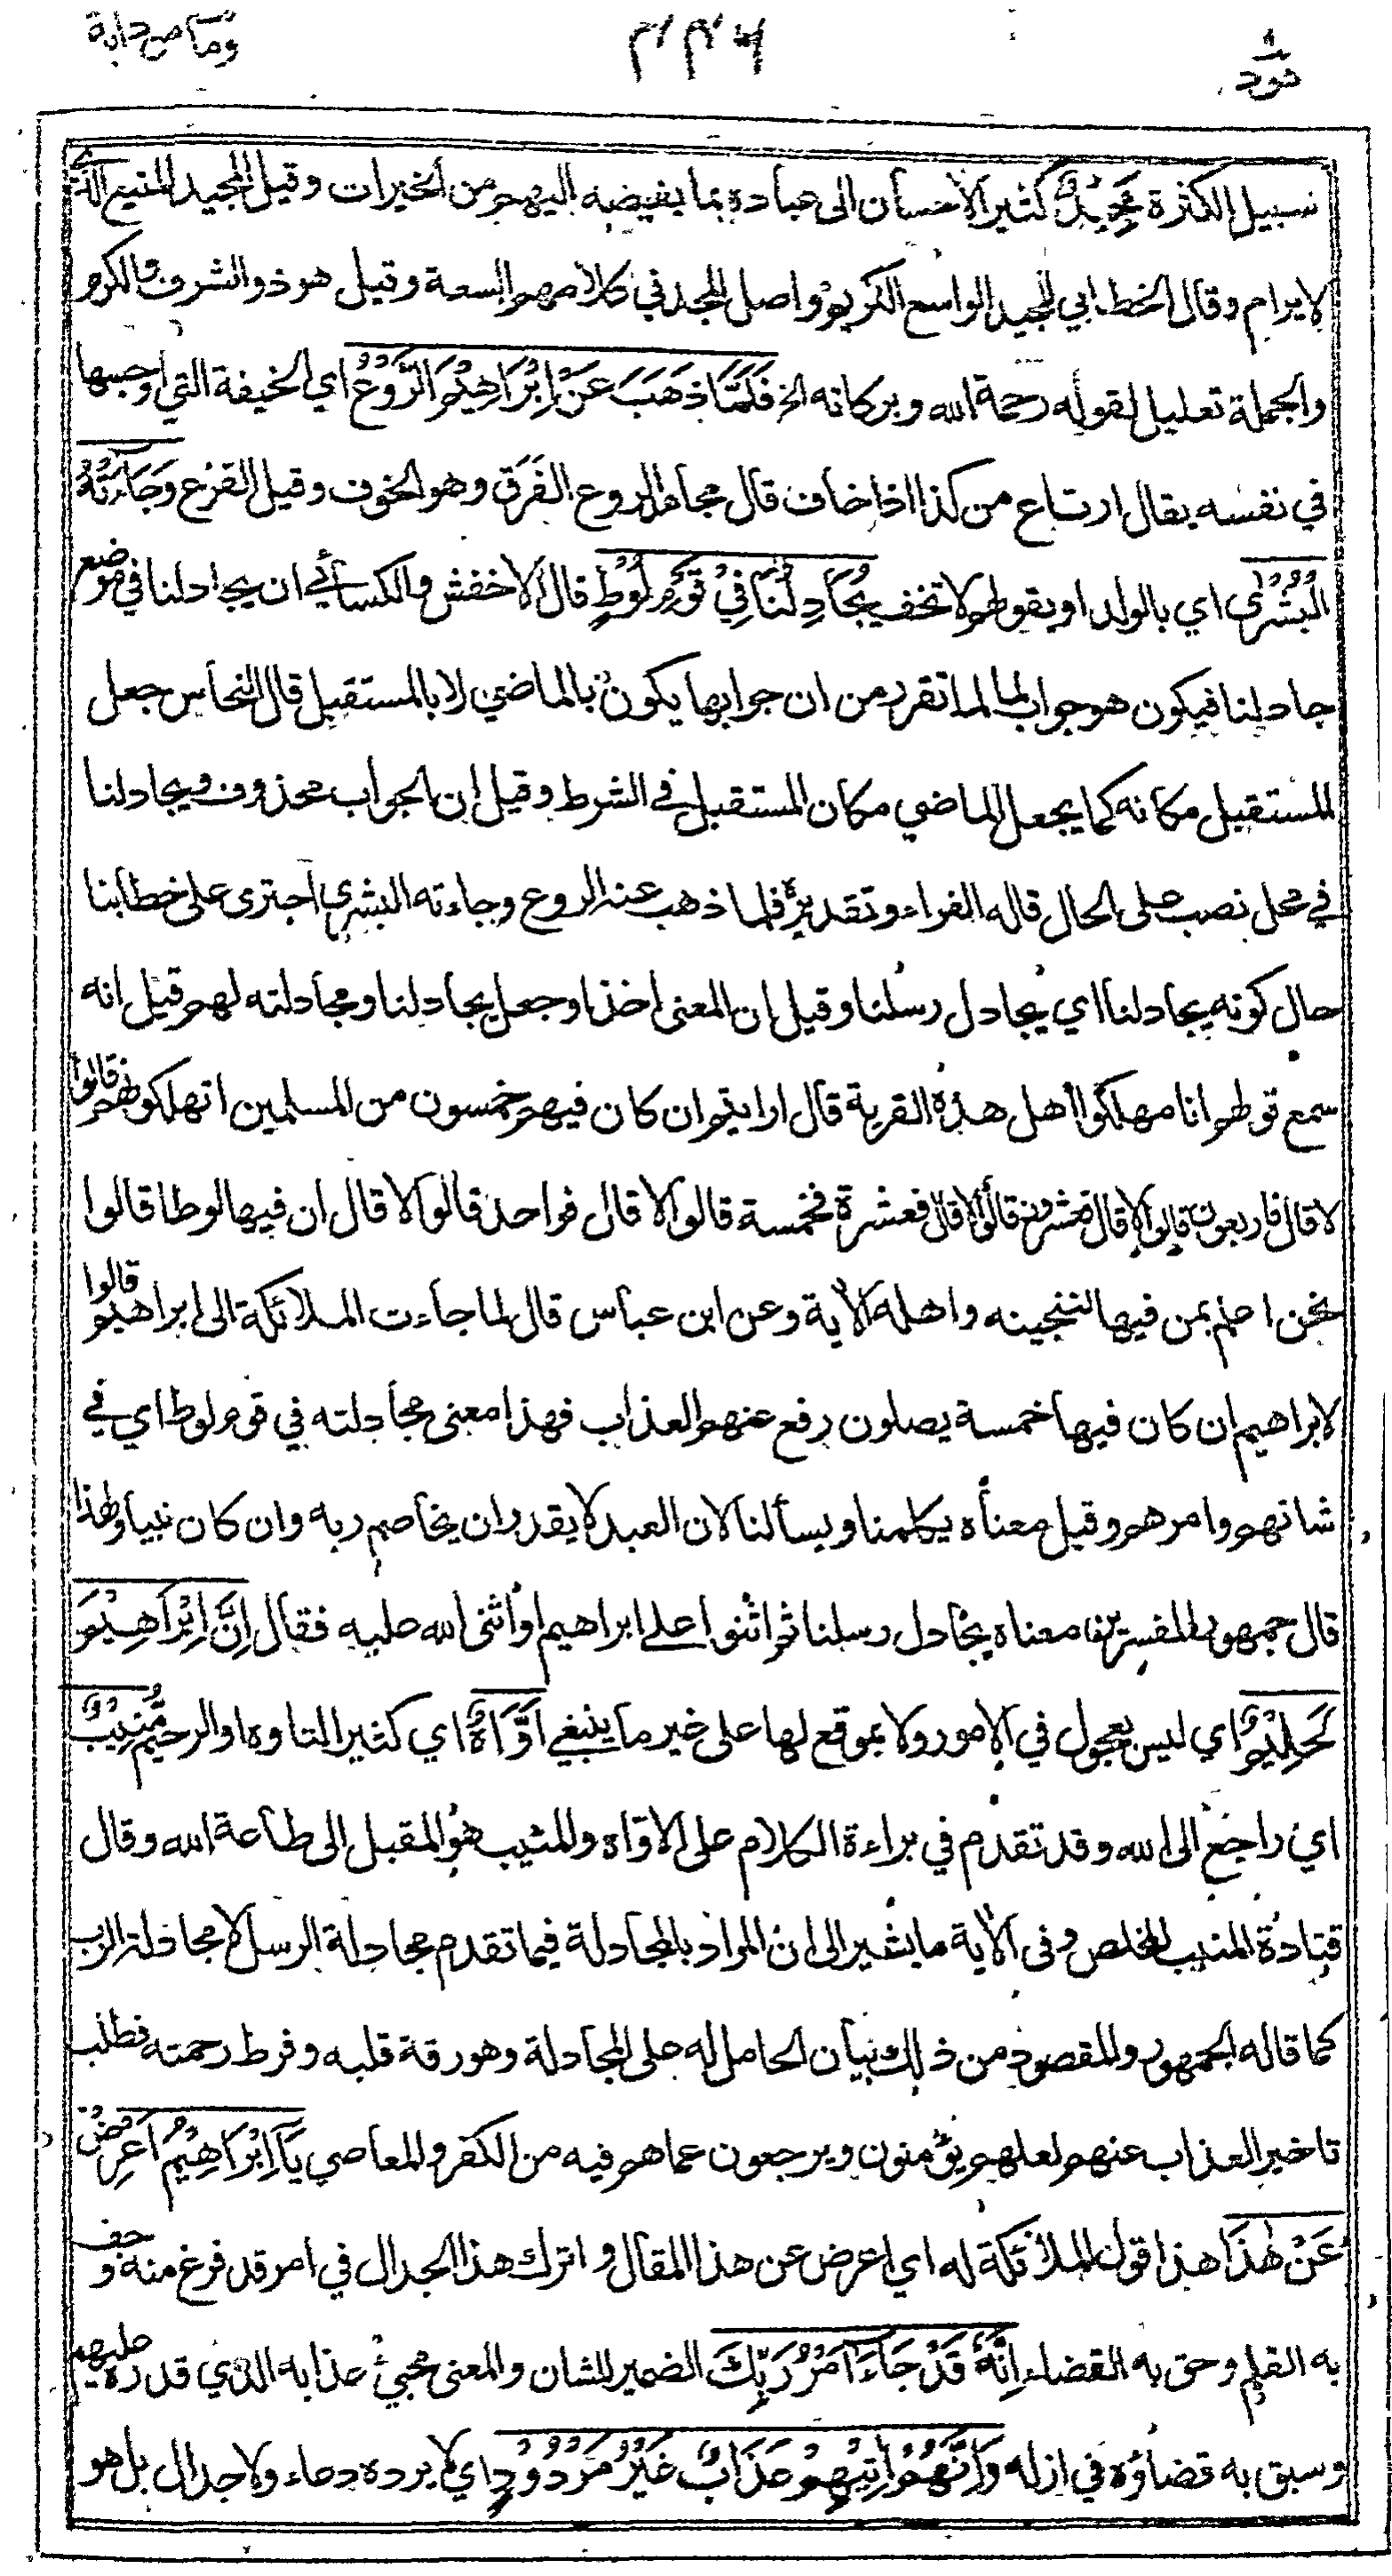 هود
۴۴۶
وما من دابة
سبيل الكثرة مَّجِيدٌ كثير الاحسان الى عبادة بما يفيضه اليهم من الخيرات وقيل المجيد المنيع الذي
لا يرام وقال الخطابي المجيد الواسع الكريم واصل المجد في كلامهم السعة وقيل هو ذو الشرف والكرم
والجملة تعليل لقوله رحمة الله وبركاته الخ فَلَمَّا ذَهَبَ عَنْ اِبْرَاهِيْمَ الرَّوْعُ اي الخيفة التي اوجسها
في نفسه يقال ارتاع من كذا اذا خاف قال مجاهد الروع الفَرَق وهو الخوف وقيل الفزع وَجَاءَتْهُ
الْبُشْرٰى اي بالولد او بقولهم لا تخف يُجَادِلُنَا فِيْ قَوْمِ لُوْطٍ قال الاخفش والكسائي ان يجادلنا في موضع
جادلنا فيكون هو جواب لما لما تقرر من ان جوابها يكون بالماضي لا بالمستقبل قال النحاس جعل
المستقبل مكانه كما يجعل الماضي مكان المستقبل في الشرط وقيل ان الجواب محذوف ويجادلنا
في محل نصب على الحال قاله الفراء وتقديره فلما ذهب عنه الروع وجاءته البشرى اجترى على خطابنا
حال كونه يجادلنا اي يجادل رسلنا وقيل ان المعنى اخذ او جعل يجادلنا ومجادلته لهم قيل انه
سمع قولهم انا مهلكوا اهل هذه القرية قال ارايتم ان كان فيهم خمسون من المسلمين اتهلكونهم قالوا
لا قال فاربعون قالوا لا قال فعشرون قالوا لا قال فعشرة فخمسة قالوا لا قال فواحد قالوا لا قال ان فيها لوطا قالوا
نحن اعلم بمن فيها لننجينه واهله الاية وعن ابن عباس قال لما جاءت الملائكة الى ابراهيم قالوا
لابراهيم ان كان فيها خمسة يصلون رفع عنهم العذاب فهذا معنى مجادلته في قوم لوط اي في
شانهم وامرهم وقيل معناه يكلمنا ويسألنا لان العبد لا يقدر ان يخاصم ربه وان كان نبيا ولهذا
قال جمهور المفسرين معناه يجادل رسلنا ثم اثنوا على ابراهيم او اثنى الله عليه فقال اِنَّ اِبْرَاهِيْمَ
لَحَلِيْمٌ اي ليس بعجول في الامور ولا بموقع لها على غير ما ينبغي اَوَّاهٌ اي كثير التاوه او الرحيم مُّنِيْبٌ
اي راجع الى الله وقد تقدم في براءة الكلام على الاواه والمنيب هو المقبل الى طاعة الله وقال
قتادة المنيب المخلص وفي الاية ما يشير الى ان المراد بالمجادلة فيما تقدم مجادلة الرسل لا مجادلة الرب
كما قاله الجمهور والمقصود من ذلك بيان الحامل له على المجادلة وهو رقة قلبه وفرط رحمته فطلب
تاخير العذاب عنهم لعلهم يؤمنون ويرجعون عما هم فيه من الكفر والمعاصي يَآ اِبْرَاهِيْمُ اَعْرِضْ
عَنْ هٰذَا هذا قول الملائكة له اي اعرض عن هذا المقال واترك هذا الجدال في امر قد فرغ منه وجف
به القلم وحق به القضاء اِنَّهٗ قَدْ جَآءَ اَمْرُ رَبِّكَ الضمير للشان والمعنى مجيئ عذابه الذي قدره عليهم
وسبق به قضاؤه في ازله وَاِنَّهُمْ اٰتِيْهِمْ عَذَابٌ غَيْرُ مَرْدُوْدٍ اي لا يرده دعاء ولا جدال بل هو